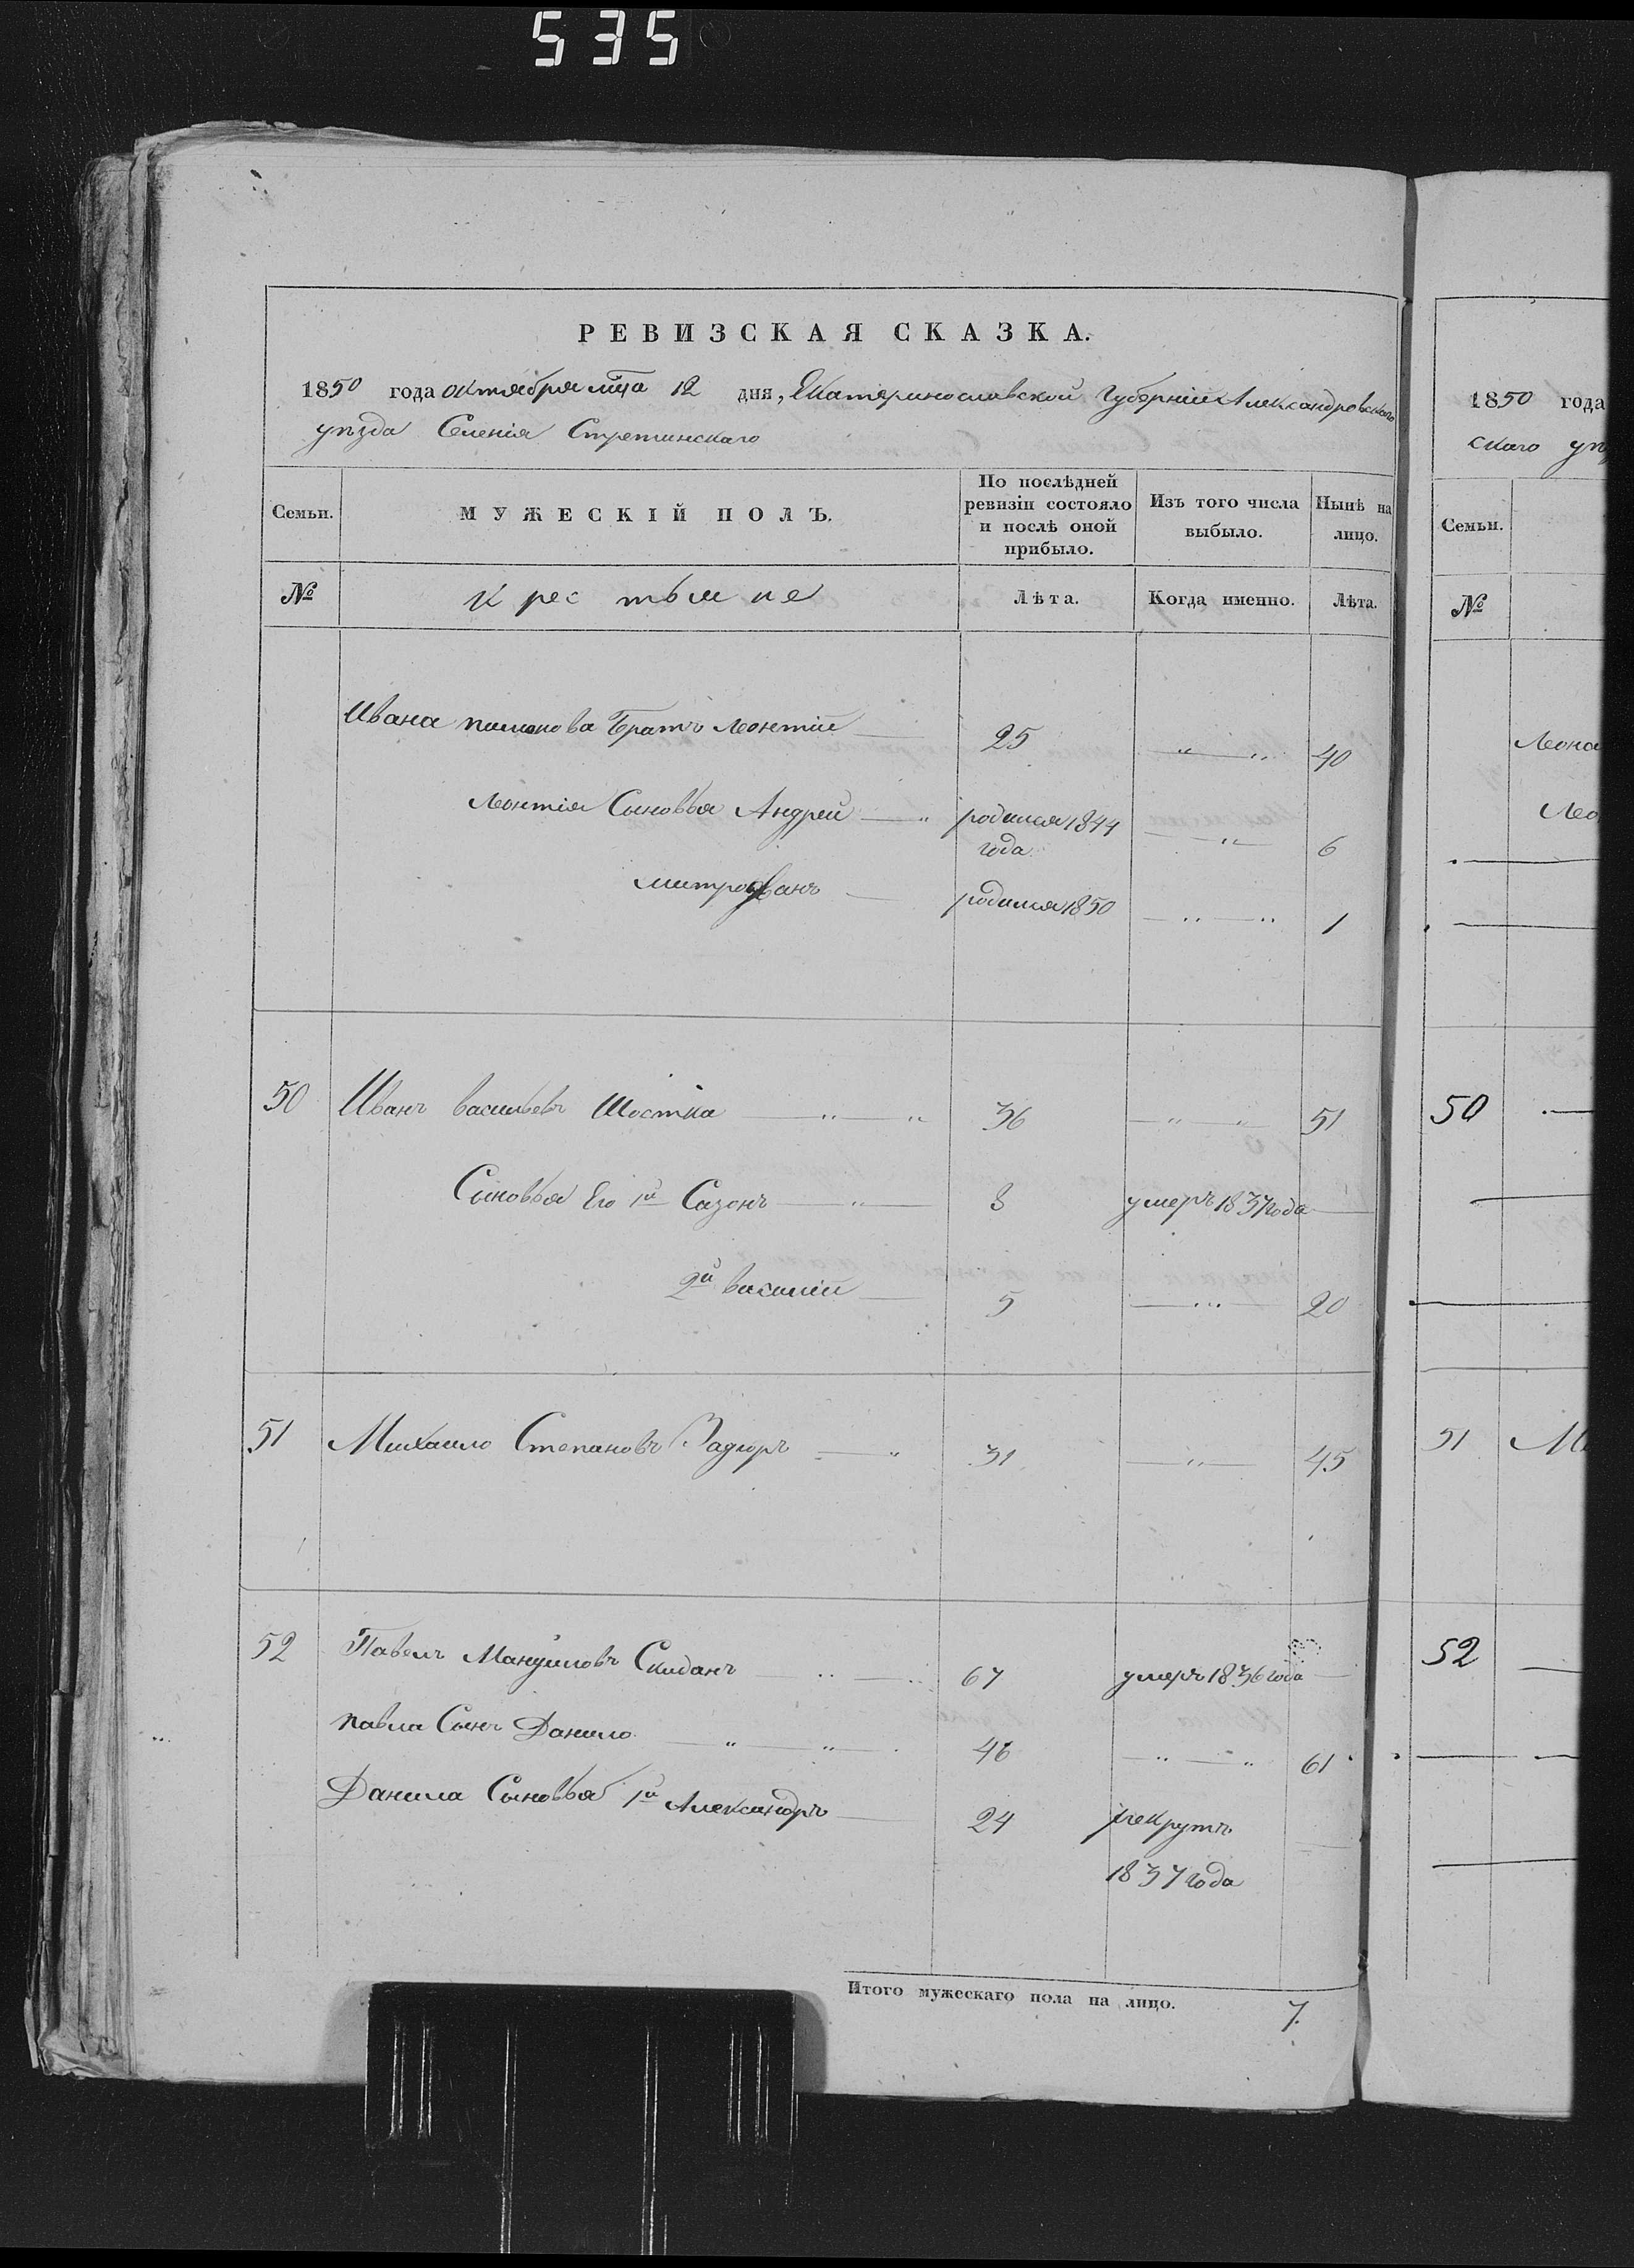 535
РЕВИЗСКАЯ СКАЗКА.
1850 года октября мца 12 дня, Екатеринославской Губерніи Александровскаго
уѣзда Селенія Стретинскаго
Семьи. МУЖЕСКІЙ ПОЛЪ. По послѣдней ревизіи состояло и послѣ оной прибыло. Изъ того числа выбыло. Нынѣ на лицо.
№ крестьяне Лѣта. Когда именно. Лѣта.
Ивана Братъ Леонтій 25 40
Леонтія Сыновья Андрей родился 1844 года 6
митрофанъ родился 1850 1
50 Иванъ васильевъ Шостка 36 51
Сыновья Его 1й Сазонъ 8 умеръ 1837 года
2й василій 5 20
51 Михайло Степановъ 31 45
52 Павелъ Мануиловъ Скиданъ 67 умеръ 1836 года
павла Сынъ Данило 46 61
Данила Сыновья 1й Александръ 24 рекрутъ
1837 года
Итого мужескаго пола на лицо. 7.
1850 года
скаго уѣ
Семьи.
№
Леона
Лео
50
51 М
52